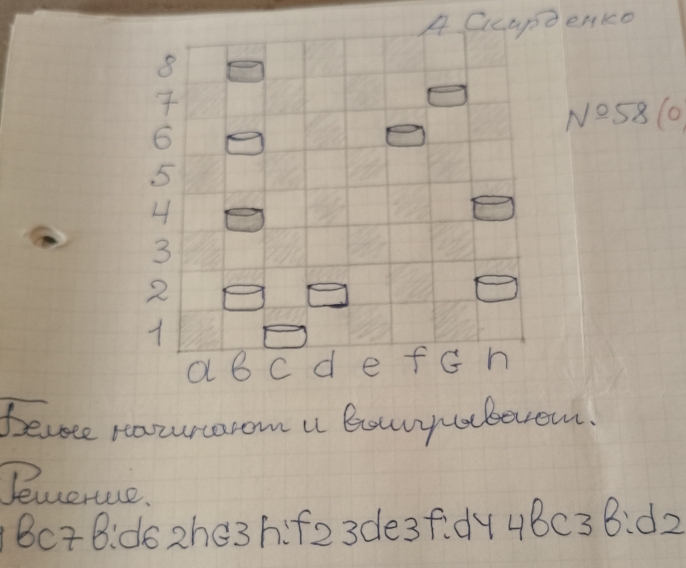 А Скирденко
8
7
№58(0
6
5
4
3
2
1
a b c d e f G h
Белые начинают и выигрывают.
Решение.
1 вc7 в:d6 2hG3 h:f2 3de3 f:d4 4вc3 в:d2